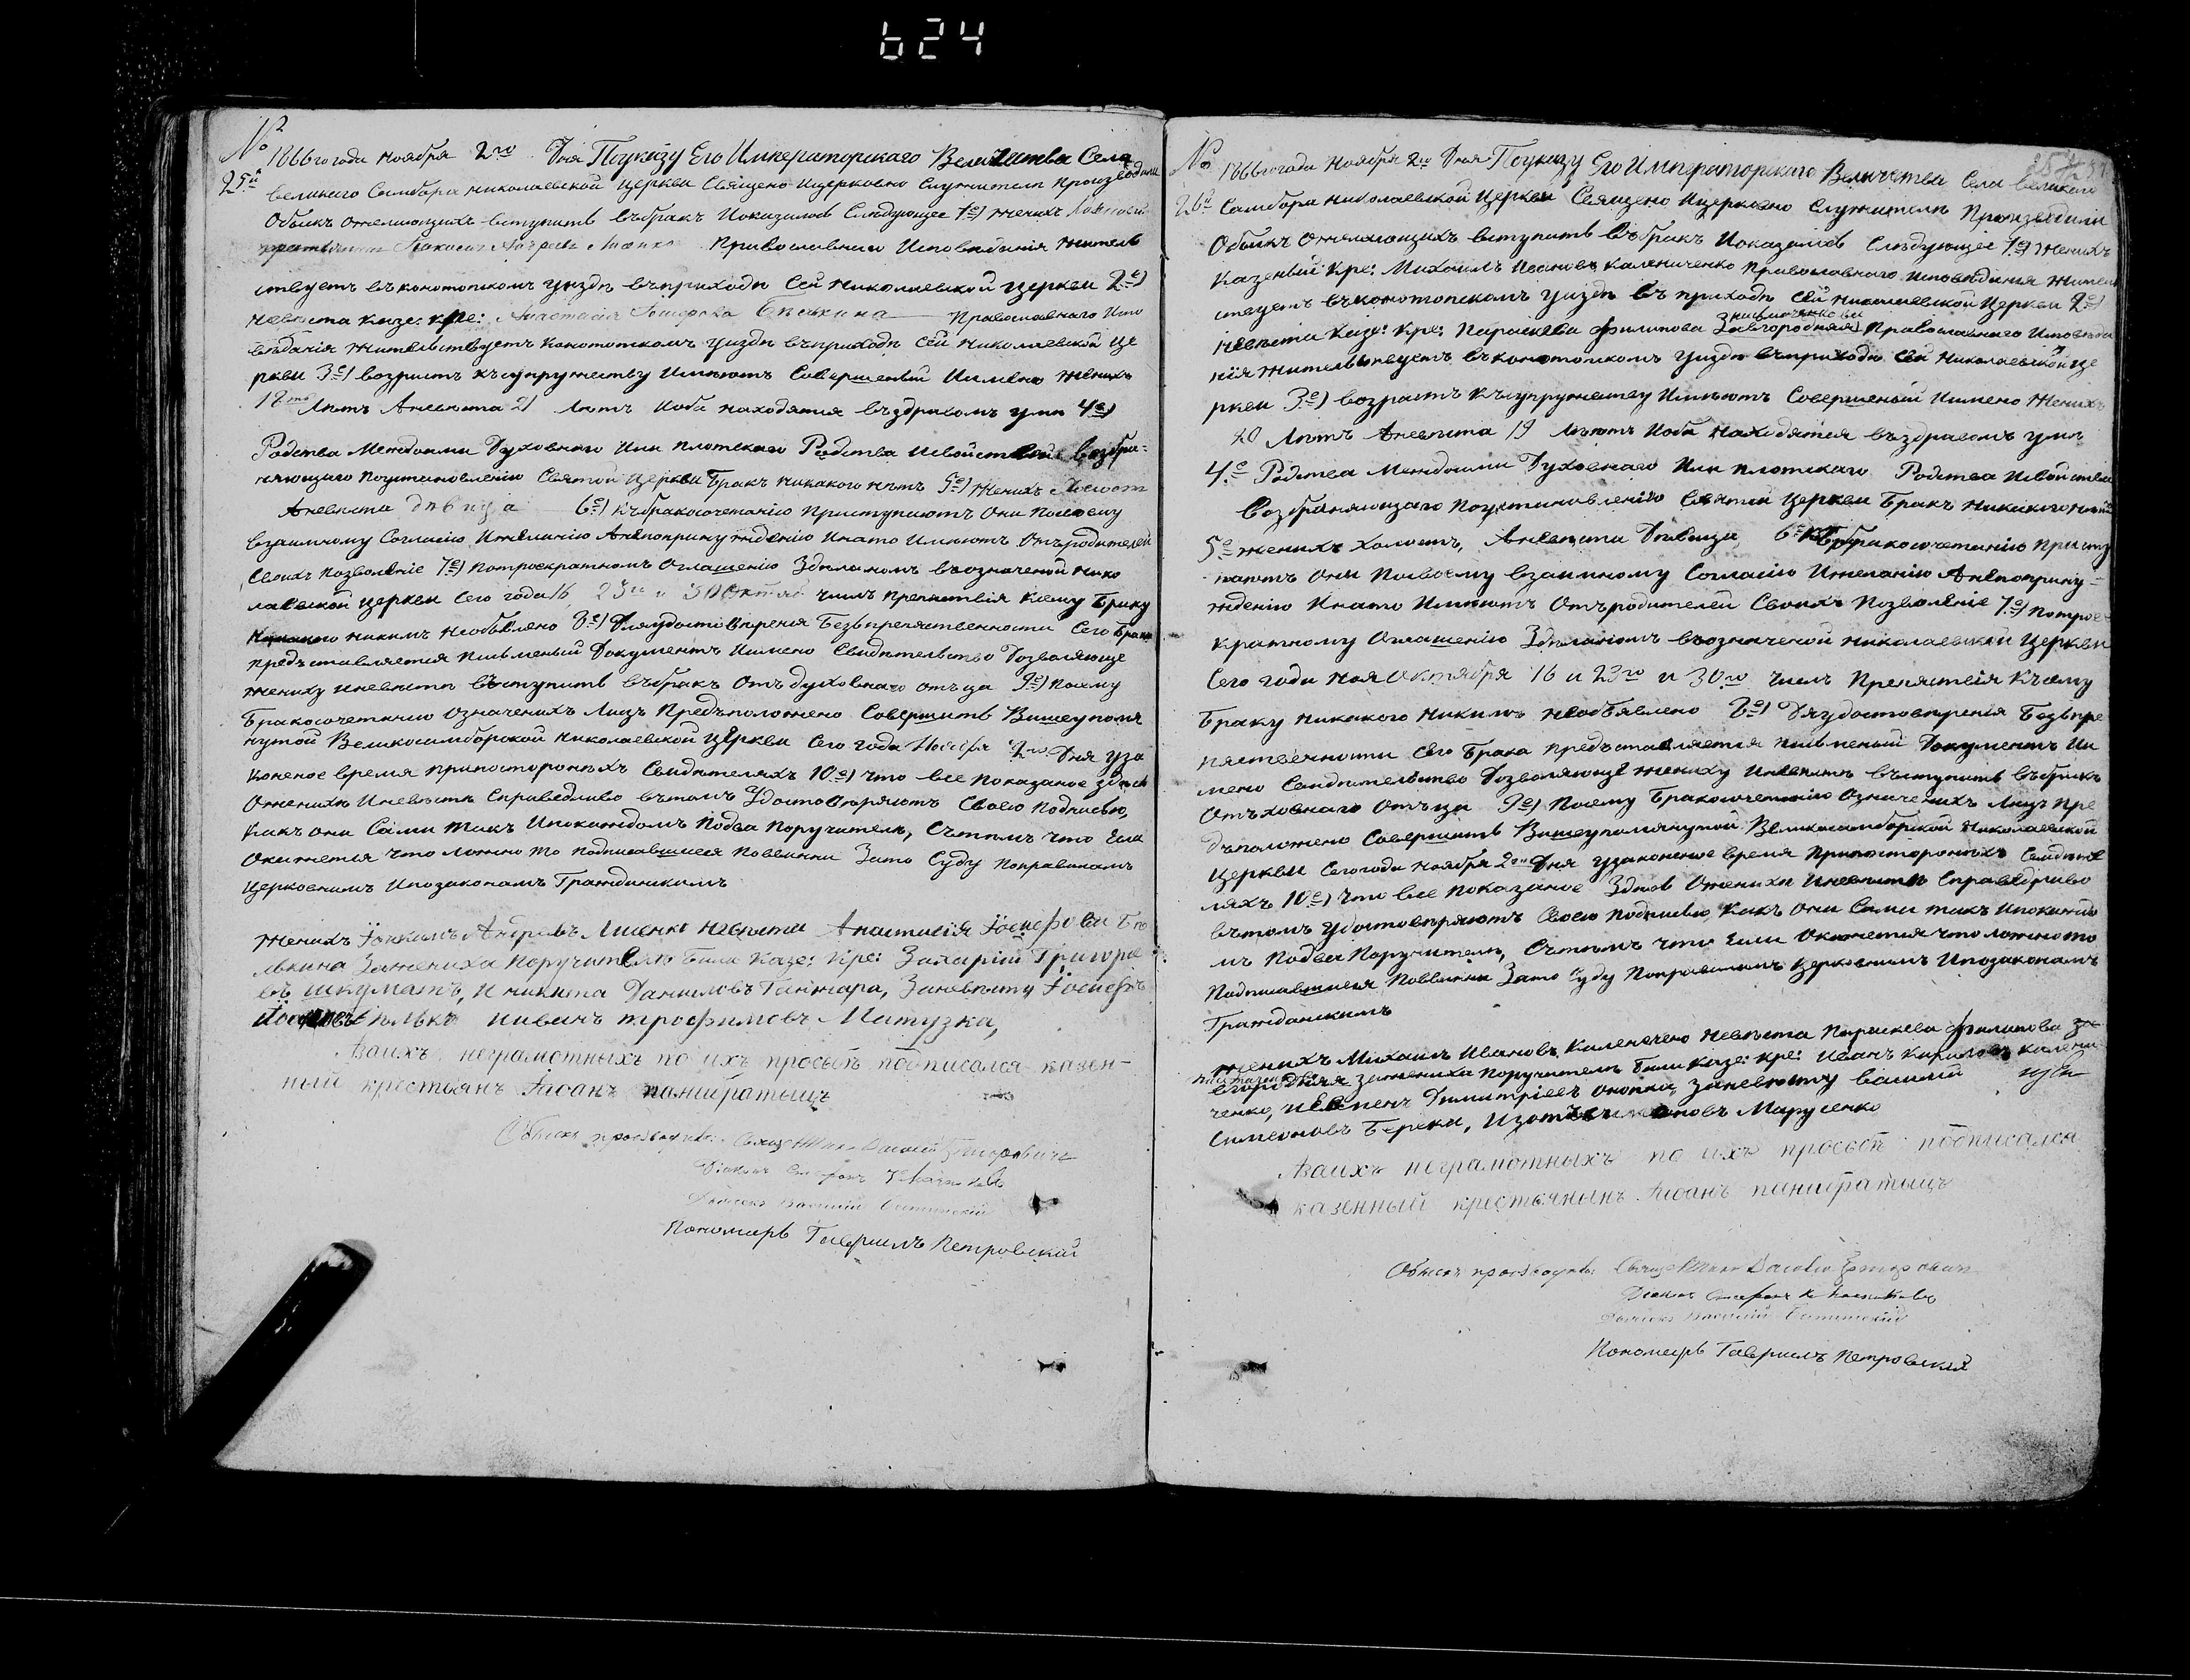 624
№
25й
1866го года ноября 2го Дня Поуказу Его Императорскаго Величества Села
великаго Самбора николаевской церкви Священо Ицерковно Служители Производили
Обыск ожелающихъ вступить въбракъ Иоказалось Следующее 1е) женихъ
Православнаго Исповедания жители
ствуетъ въконотопкомъ уизде въприходе Сей николаевской церкви 2е)
невеста казе: кре: Анастасия Иосифова Белькина Православнаго Испо
ведания жительствуетъ конотопкомъ уизде въприходе Сей николаевской це
ркви 3е) возрастъ къ супружеству Имеютъ Совершеный Именно женихъ
18ть Летъ Аневеста 21 Летъ Иоба находятся въздравомъ уме 4е)
Родства Междоими Духовнаго Или плотскаго Родства Исвойства возбра-
няющаго поустановлению Святой церкви Бракъ никакого нетъ 5е) Женихъ Холост
Аневеста девица 6е) Къбракосочетанию Приступаютъ Они Посвоему
взаимному Согласию Ижеланию Анепопринуждению Инато Имеютъ Отъродителей
Своихъ позволение 7е) Потроекратномъ Оглашению Зделаномъ въозначеной нико
лаевской церкви Сего года 16, 23го и 30 Октяб числъ препятствия Ксему Браку
никемъ Необъявлено 8е) Дляудостоверения Безъпрепятственности Сего Брака
предъставляется писменый Документъ Имено Свидетельство Дозволяюще
жениху иневесте въступить въбракъ отъ духовнаго отъца 9е) Посему
Бракосочетанию Означенихъ Лицъ Предъположено Совершить Вишеупомя
нутой Великосамборской николаевской церкви Сего года Ноября 2го Дня уза
коненое время припосторонихъ Свидетеляхъ 10е) что все показаное здесь
Ожених Иневесте Справедливо вътомъ Удостоверяютъ Своею Подписью,
Какъ они Сами такъ Ипокаждомъ Подва Поручитель, Сътемъ что Если
Окажется что ложно то подписавшиеся повинни Зато Суду Поправиламъ
церковнимъ Ипозаконамъ Гражданскимъ
женихъ Иоакимъ Андреевъ Лисенко невеста Анастасия Иосифова Бе
лькина Зажениха Поручителе Били Казе: Кре: Захарий Григоре
въ шкуматъ, И никита Даниловъ Ганжара, Заневесту Иосифъ
Иванъ трофимовъ Матузка,
Азаихъ неграмотныхъ по ихъ просьбе подписался казен-
ный крестьянъ Иванъ панибратыцъ
Обыскъ производили: Священникъ Василий Григоровичъ
Диаконъ Стефанъ
Дьячокъ Василий
Пономарь Гавриилъ Петровский
№
26й
1866го года Ноября 2го Дня Поуказу Его Императорскаго Величества Села великаго
Самбора николаевской церкви Священо Ицерковно Служители Производили
Обыскъ Ожелающихъ вступить въбракъ Иоказалось Следующее 1е) женихъ
казеный Кре: Михаилъ Ивановъ каленниченко православнаго Исповедания жител
ствуетъ въконотопскомъ уизде въ приходе Сей николаевской церкви 2е)
невеста Казе: Кре: Параскева филипова Завгородняя Православнаго Исповеда
ния жительствуетъ въконотопкомъ уизде въприходе Сей Николаевской це
ркви 3е) возрастъ къ супружеству Имеютъ Совершеный Имено Женихъ
20 Летъ Аневеста 19 Летъ Иоба находятся въздравомъ уме
4е Родства Междоими Духовнаго Или плотскаго Родства Исвойства
Возбраняющаго Поустановлению Святой церкви Бракъ никакого нет
5е женихъ холостъ, Аневеста Девица, 6е Къбракосочетанию Присту
паютъ Они Посвоему взаимному Согласию Ижеланию Анепоприну-
ждению Инато Имеютъ Отъродителей Своихъ Позволение 7е) Потрое
кратному Оглашению Зделаномъ въозначеной николаевской церкви
Сего года Октября 16 и 23го и 30го Числ Препятствия Къему
Браку никакого никимъ необъявлено 8е) Дляудостоверения Безъпре
пятственности Сего Брака предъставляется писменый Документъ Им
мено Свидетельство Дозволяюще жениху Иневесте въступить въбракъ
Отъховнаго Отъца 9е) Посему Бракосочетанию Означенихъ Лицъ Пре
дъположено Совершить Вишеупомянутой Великосамборской николаевской
церкви Сего года Ноября 2го Дня узаконеное время Припосторонихъ Свидете
ляхъ 10е) Что все Показаное Здесь Ожениха Иневесте Справедливо
вътомъ удостоверяютъ Своею Подписью Какъ Они Сами такъ Ипокаждо
мъ Подва Поручитель, Сътемъ что Если Окажется что ложно то
Подписавшиеся Повинни Зато Суду Поправиламъ Церковнымъ Ипозаконамъ
Гражданскимъ
женихъ Михаилъ Ивановъ Каленичено невеста Параскева филипова за
вгородняя Зажениха Поручитель Били казе: кре: Иванъ Кириловъ калени
ченко, Иевменъ Димитриевъ Окопка, Заневесту Василий
Симеоновъ Берека, Изотъ Симоновъ Марусенко
Азаихъ неграмотныхъ по ихъ просьбе подписался
казенный крестьянинъ Иванъ панибратыцъ
Обыскъ производили: Священникъ Василий Григорович
Диаконъ Стефанъ
Дьячокъ Василий
Пономарь Гавриилъ Петровский